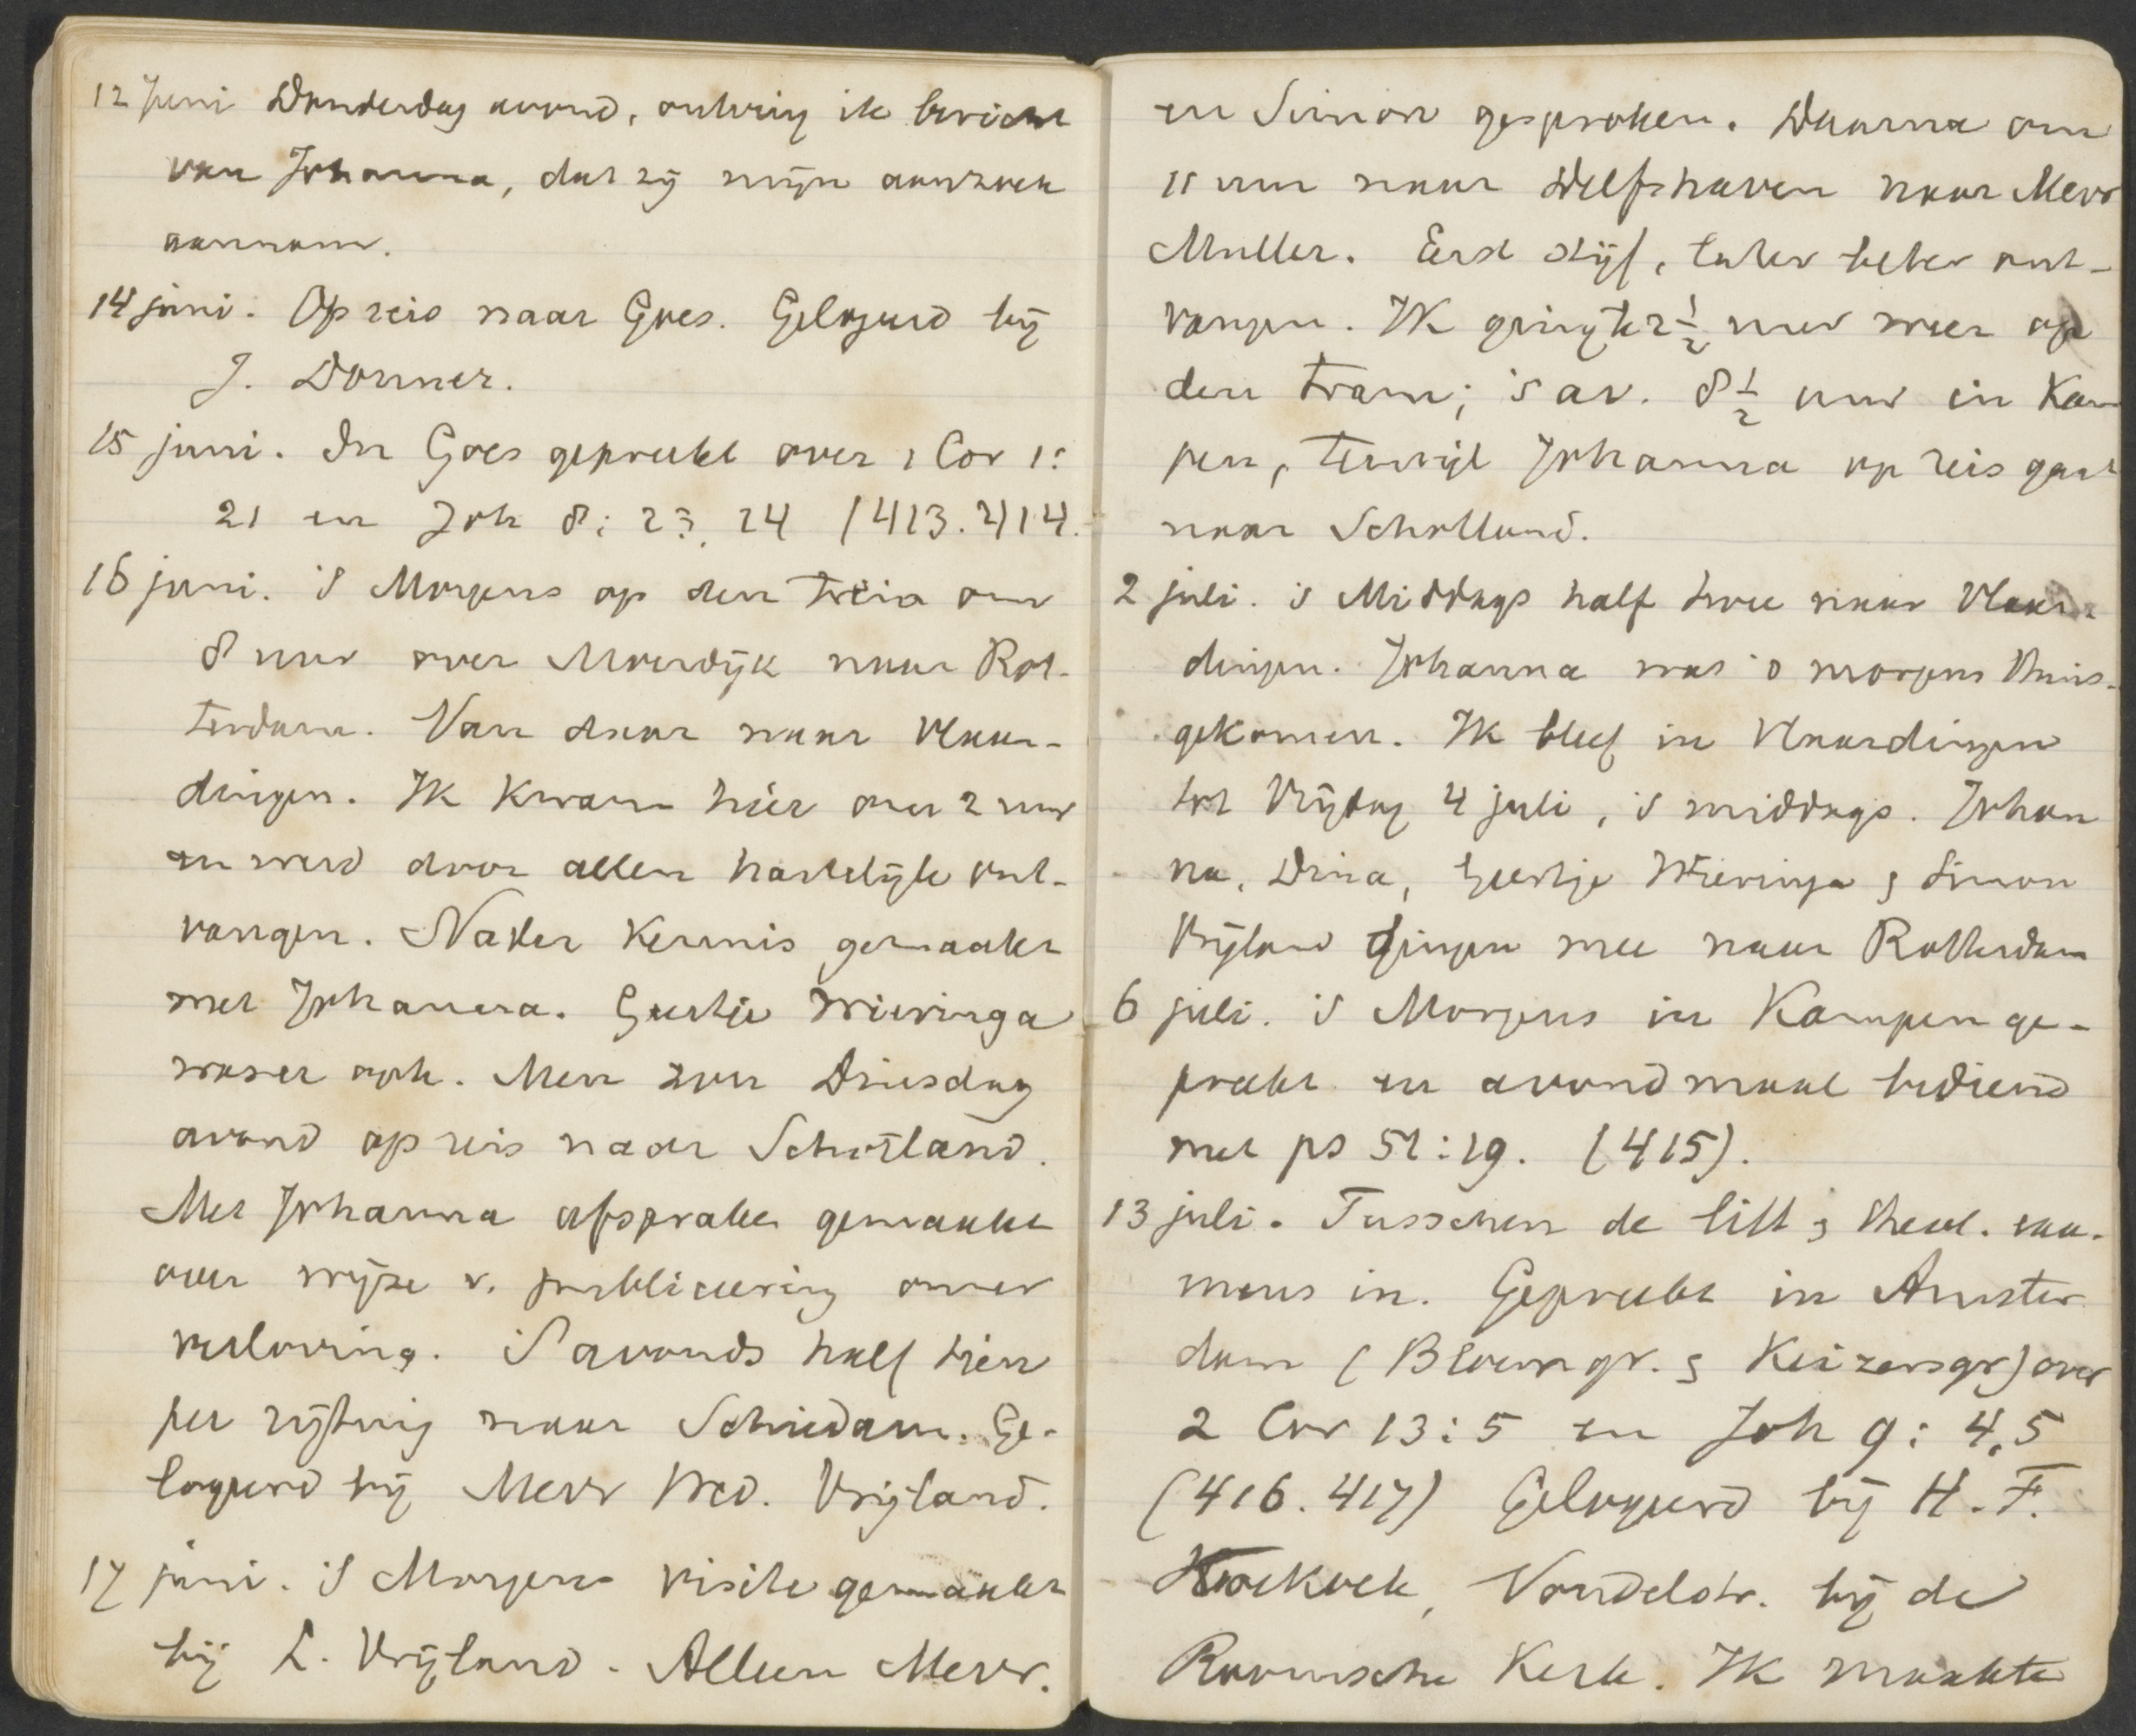 12 Juni Donderdag avond, ontving ik bericht
van Johanna, dat zij mijn aanzoek
aannam.
14 juni. Op reis naar Goes. Gelogeerd bij
J. Donner.
15 juni. In Goes gepreekt over 1 Cor 1:
21 en Joh 8: 23, 24 (413. 414.
16 juni. 's Morgens op den trein om
8 uur over Moerdijk naar Rot-
terdam. Van daar naar Vlaar-
dingen. Ik kwam hier om 2 uur
en werd door allen hartelijk ont-
vangen. Nader kennis gemaakt
met Johanna. Geertje Wieringa
was er ook. Men zou Dinsdag
avond op reis naar Schotland.
Met Johanna afspraken gemaakt
over wijze v. publiceering onzer
verloving. 's Avonds half tien
per rijtuig naar Schiedam. Ge-
logeerd bij Mevr Wed. Vrijland.
17 juni. 's Morgens visite gemaakt
bij L. Vrijland. Alleen Mevr.
en Simon gesproken. Daarna om
11 uur naar Delfshaven naar Mevr
Muller. Eerst stijf, later beter ont-
vangen. Ik ging te 2 1/2 uur weer op
den tram; 's av. 8 1/2 uur in Kam
pen, terwijl Johanna op reis gaat
naar Schotland.
2 juli. 's Middags half twee naar Vlaar-
dingen. Johanna was 's morgens thuis-
gekomen. Ik bleef in Vlaardingen
tot Vrijdag 4 juli, 's middags. Johan
na, Dina, Geertje Wieringa & Simon
Vrijland gingen mee naar Rotterdam
6 juli. 's Morgens in Kampen ge-
preekt en avondmaal bediend
met ps 51:19. (415).
13 juli. Tusschen de litt & theol. exa-
mens in. Gepreekt in Amster
dam (Bloemgr. & Keizersgr) over
2 Cor 13:5 en Joh 9: 4,5
(416. 417) Gelogeerd bij H. F.
Kockoek, Vondelstr. bij de
Roomsche Kerk. Ik maakte